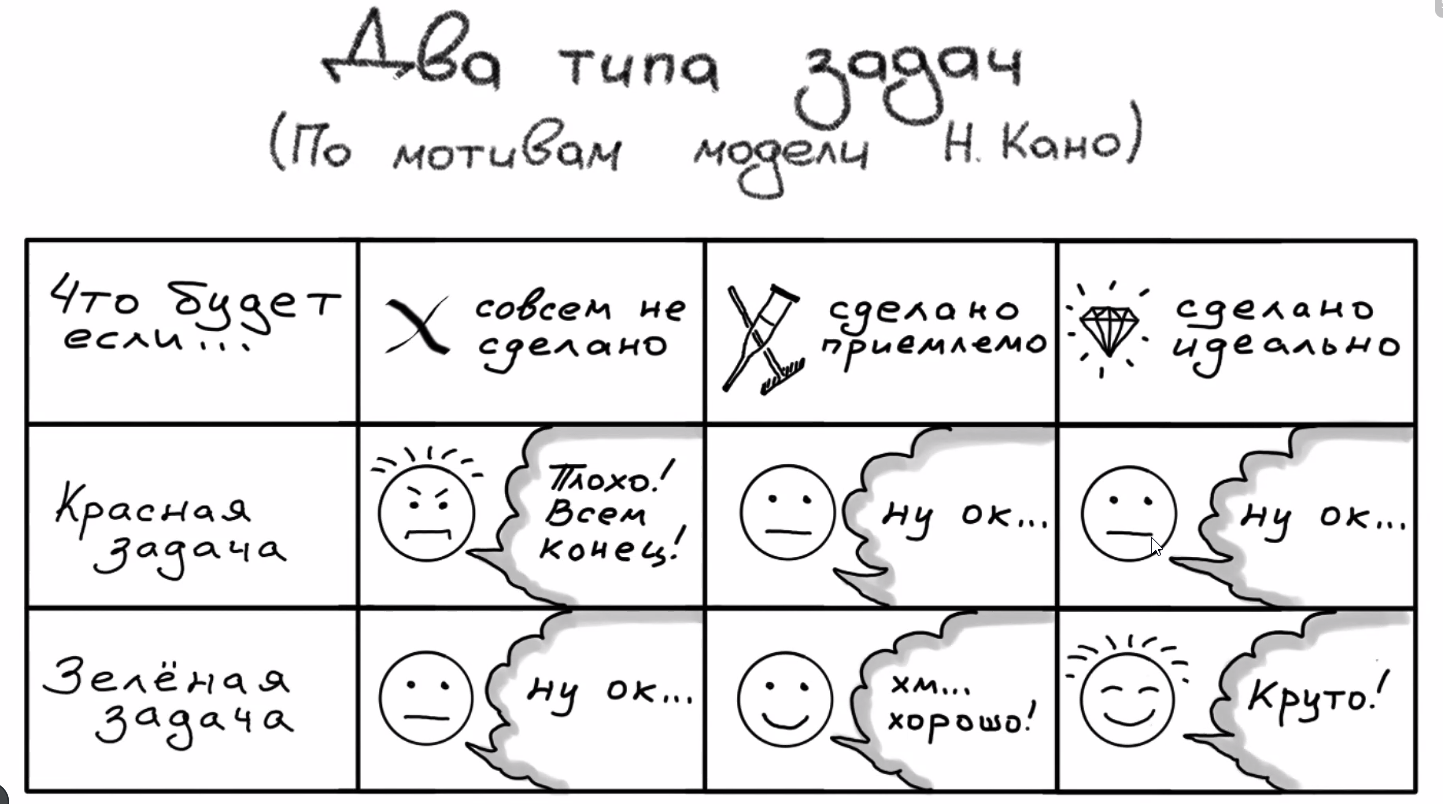 Два типа задач
(По мотивам модели Н. Кано)
Что будет
если...
совсем не
сделано
сделано
приемлемо
сделано
идеально
Красная
задача
Плохо!
Всем
конец!
ну ок...
ну ок...
Зелёная
задача
ну ок...
хм...
хорошо!
Круто!